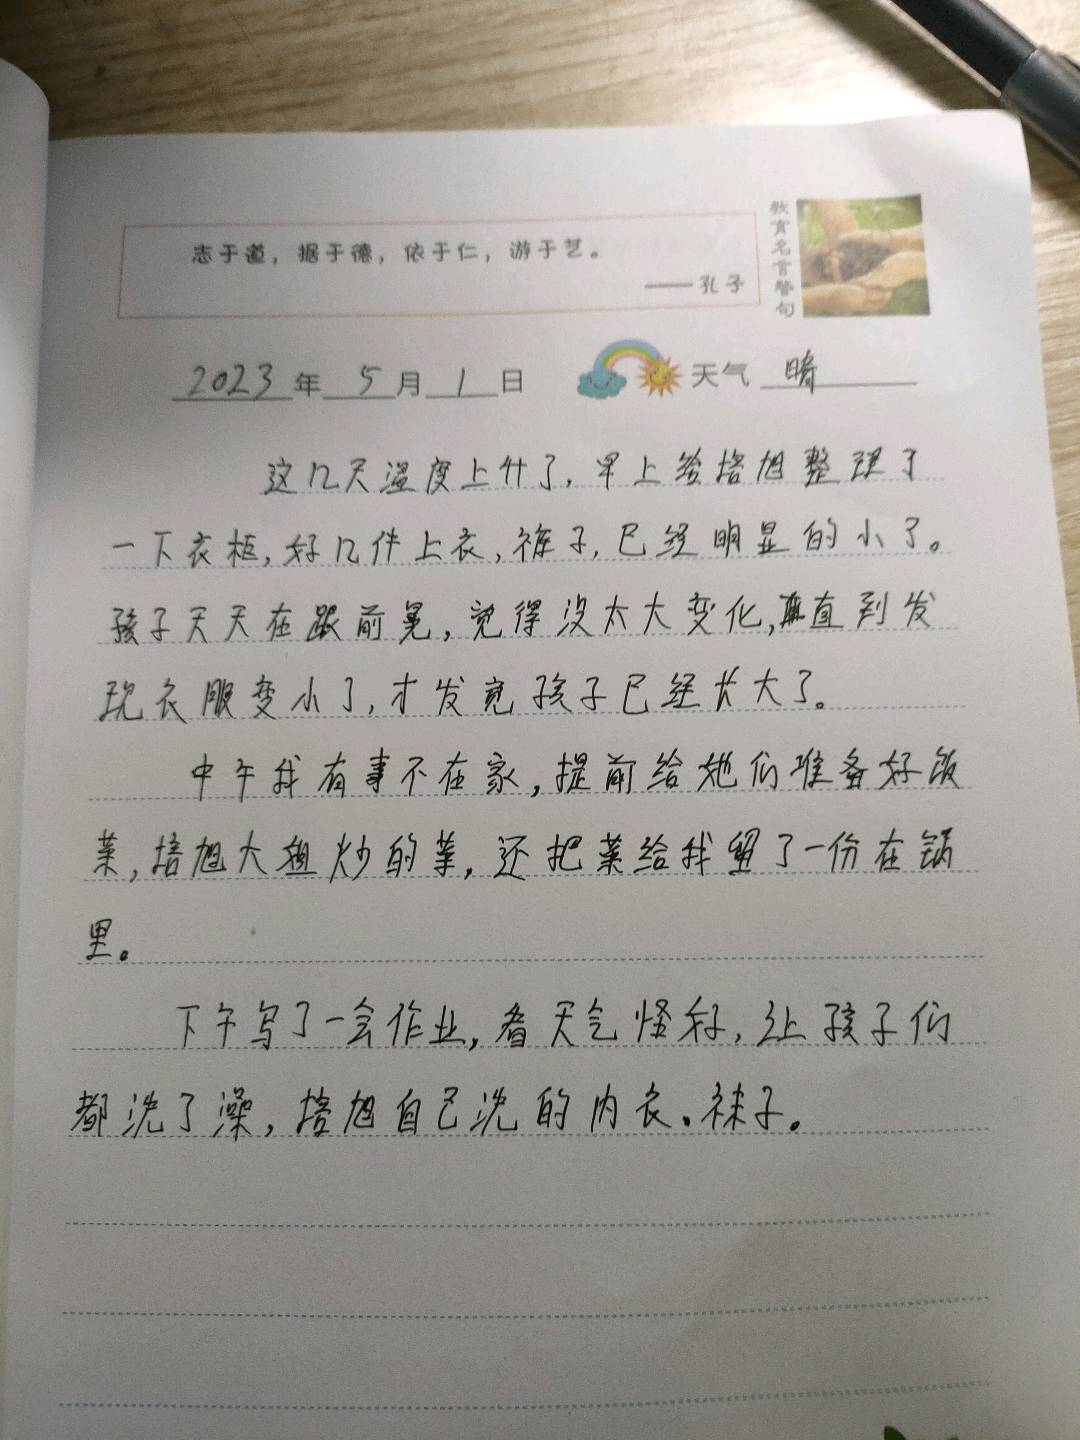 志于道，据于德，依于仁，游于艺。
——孔子
教育名言警句
2023年 5月1日 天气 晴
这几天温度上升了，早上给培旭整理了
一下衣柜，好几件上衣，裤子，已经明显的小了。
孩子天天在跟前晃，觉得没太大变化，直到发
现衣服变小了，才发觉孩子已经长大了。
中午我有事不在家，提前给她们准备好饭
菜，培旭大姐炒的菜，还把菜给我留了一份在锅
里。
下午写了一会作业，看天气怪好，让孩子们
都洗了澡，培旭自己洗的内衣、袜子。